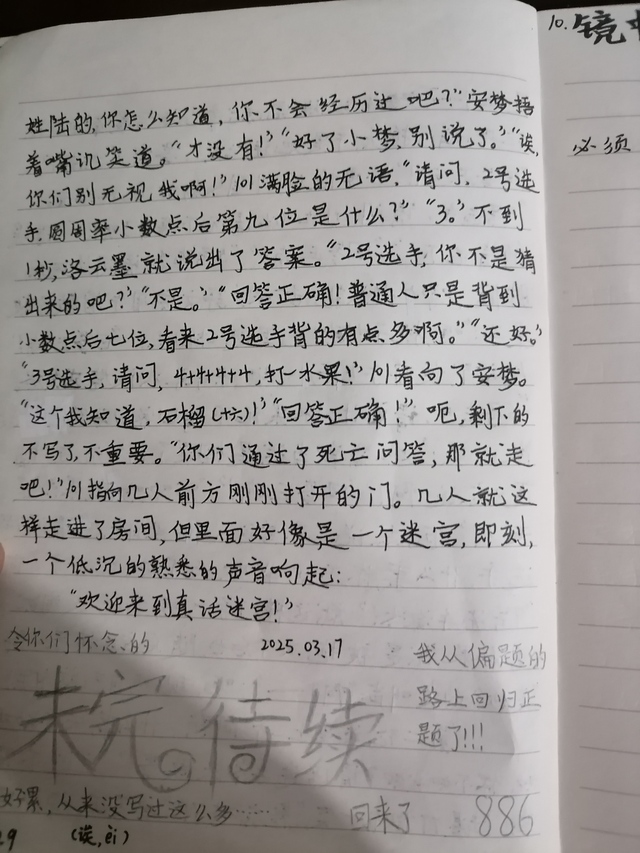 姓陆的,你怎么知道,你不会经历过吧?”安梦捂
着嘴讥笑道。“才没有!”“好了小梦,别说了。”“诶,
你们别无视我啊!”101满脸的无语,“请问,2号选
手,圆周率小数点后第九位是什么?”“3。”不到
1秒,洛云墨就说出了答案。“2号选手,你不是猜
出来的吧?”“不是。”“回答正确!普通人只是背到
小数点后七位,看来2号选手背的有点多啊。”“还好。”
“3号选手,请问,4+4+4+4,打一水果!”101看向了安梦。
“这个我知道,石榴(十六)!”“回答正确!”呃,剩下的
不写了,不重要。“你们通过了死亡问答,那就走
吧!”101指向几人前方刚刚打开的门。几人就这
样走进了房间,但里面好像是一个迷宫,即刻,
一个低沉的熟悉的声音响起:
“欢迎来到真话迷宫!”
令你们怀念的
2025.03.17
我从偏题的
路上回归正
题了!!!
未完待续
好累,从来没写过这么多……
回来了
886
29
(诶,ēi)
10.镜中
必须